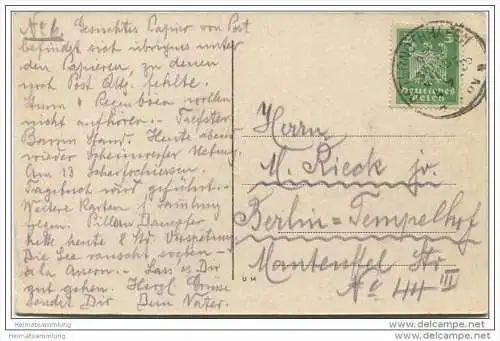 No 6. Gesuchtes Papier von Post
befindet sich übrigens unter
den Papieren, zu denen
noch Post Qtt. fehlte.
Sturm & Regenböen wollen
nicht aufhören. Tiefster
Barom Stand. Heute abend
wieder Scheinwerfer
Am 13 Scharfschiessen.
Tagebuch wird geführt.
Weitere Karten f Samlung
folgen. Pillau Dampfer
hatte heute 8 Std Verspätung
Die See rauscht
à la Lass es Dir
gut gehen. Herzl Grüsse
sendet Dir Dein Vater.
5
Deutsches
Reich
Herrn
M. Rieck jr.
Berlin=Tempelhof
Manteuffel Str
No 44 III
Heimatsammlung
Heimatsammlung.com
Heimatsammlung